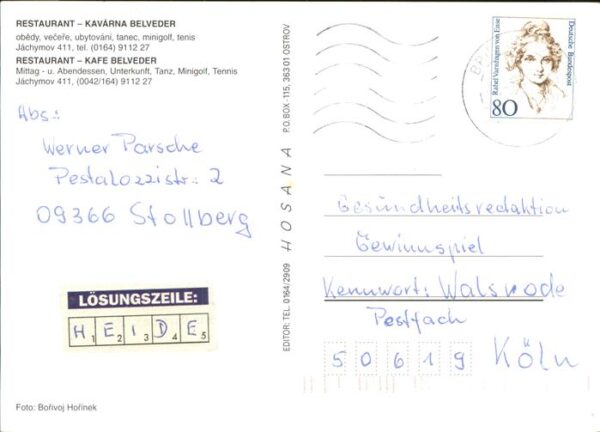 RESTAURANT – KAVÁRNA BELVEDER
obědy, večeře, ubytování, tanec, minigolf, tenis
Jáchymov 411, tel. (0164) 9112 27
RESTAURANT – KAFE BELVEDER
Mittag - u. Abendessen, Unterkunft, Tanz, Minigolf, Tennis
Jáchymov 411, (0042/164) 9112 27
Abs.:
Werner Parsche
Pestalozzistr. 2
09366 Stollberg
LÖSUNGSZEILE:
H1 E2 I3 D4 E5
Foto: Bořivoj Hořinek
EDITOR: TEL. 0164/2909 HOSANA P.O.BOX - 115, 363 01 OSTROV
Rahel Varnhagen von Ense
Deutsche Bundespost
80
Gesundheitsredaktion
Gewinnspiel
Kennwort: Walsrode
Postfach
50619 Köln